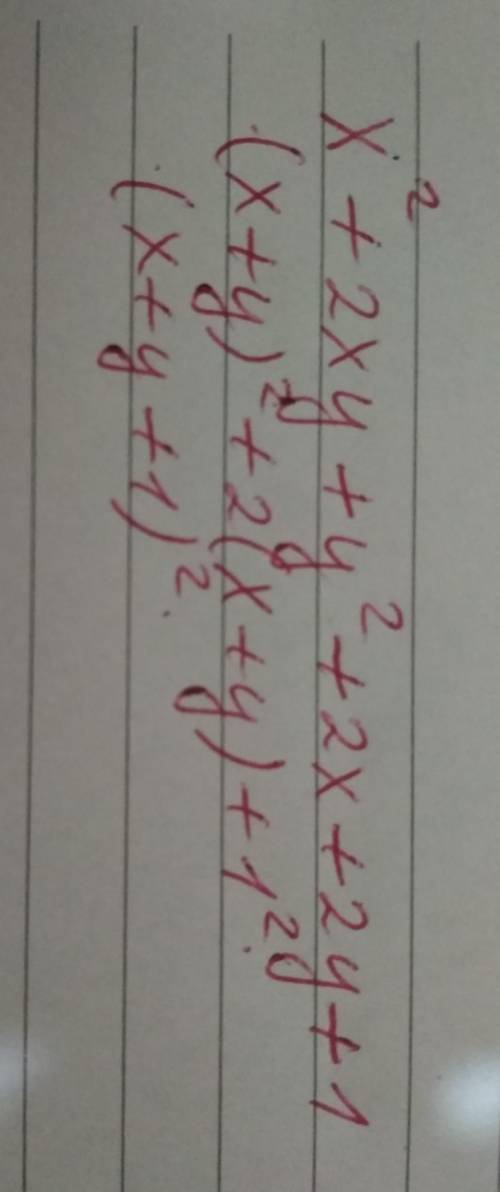 x² + 2xy + y² + 2x + 2y + 1
(x + y)² + 2(x + y) + 1²
(x + y + 1)²